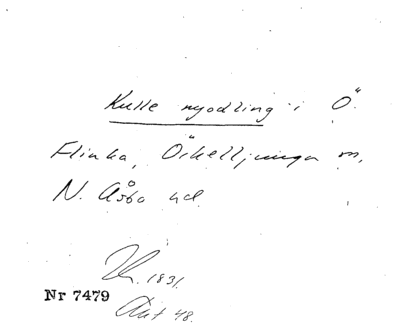 Kulle nyodling i Ö.
Flinka, Örkelljunga sn,
N. Åsbo hd.
1831.
Nr 7479
Akt 48.